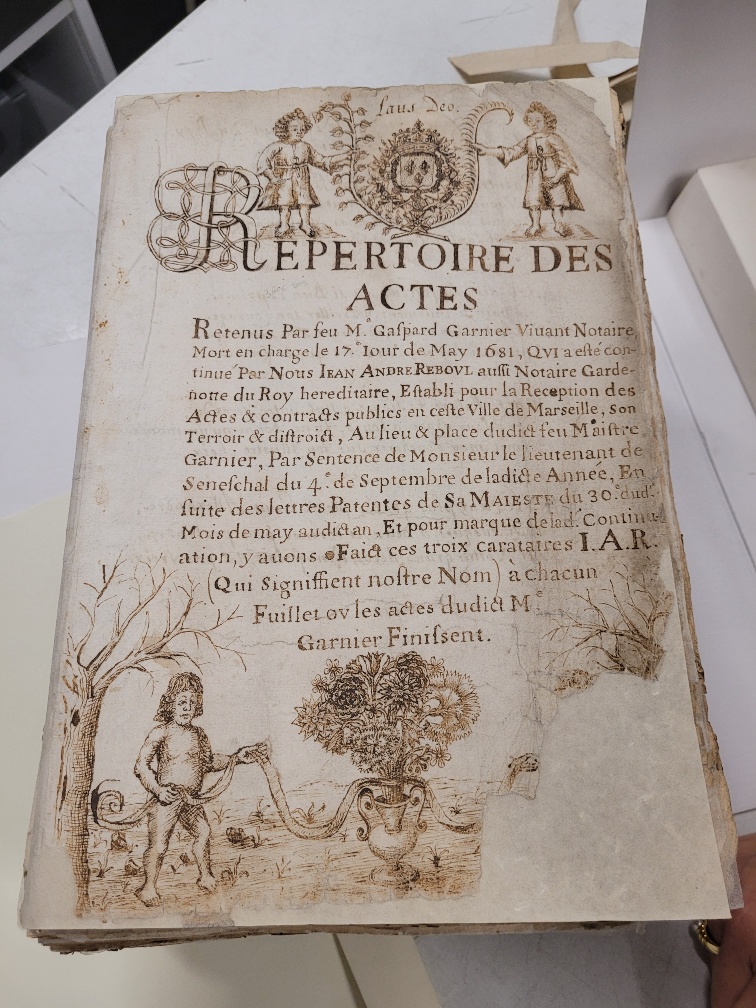 Laus Deo.
REPERTOIRE DES
ACTES
Retenus Par feu M.e Gaspard Garnier Viuant Notaire
Mort en charge le 17.e Iour de May 1681, QVI a esté con-
tinué Par Nous IEAN ANDRE REBOVL aussi Notaire Garde-
notte du Roy hereditaire, Establi pour la Reception des
Actes & contracts publics en ceste Ville de Marseille, son
Terroir & distroict, Au lieu & place dudict feu Maistre
Garnier, Par Sentence de Monsieur le lieutenant de
Seneschal du 4.e de Septembre de ladicte Année, En
suite des lettres Patentes de SA MAIESTE du 30.e dud.
Mois de may audict an, Et pour marque de lad. Continu
ation, y auons Faict ces troix carataires I.A.R.
(Qui Signiffient nostre Nom) à chacun
Fuillet ov les actes dudict M.e
Garnier Finissent.